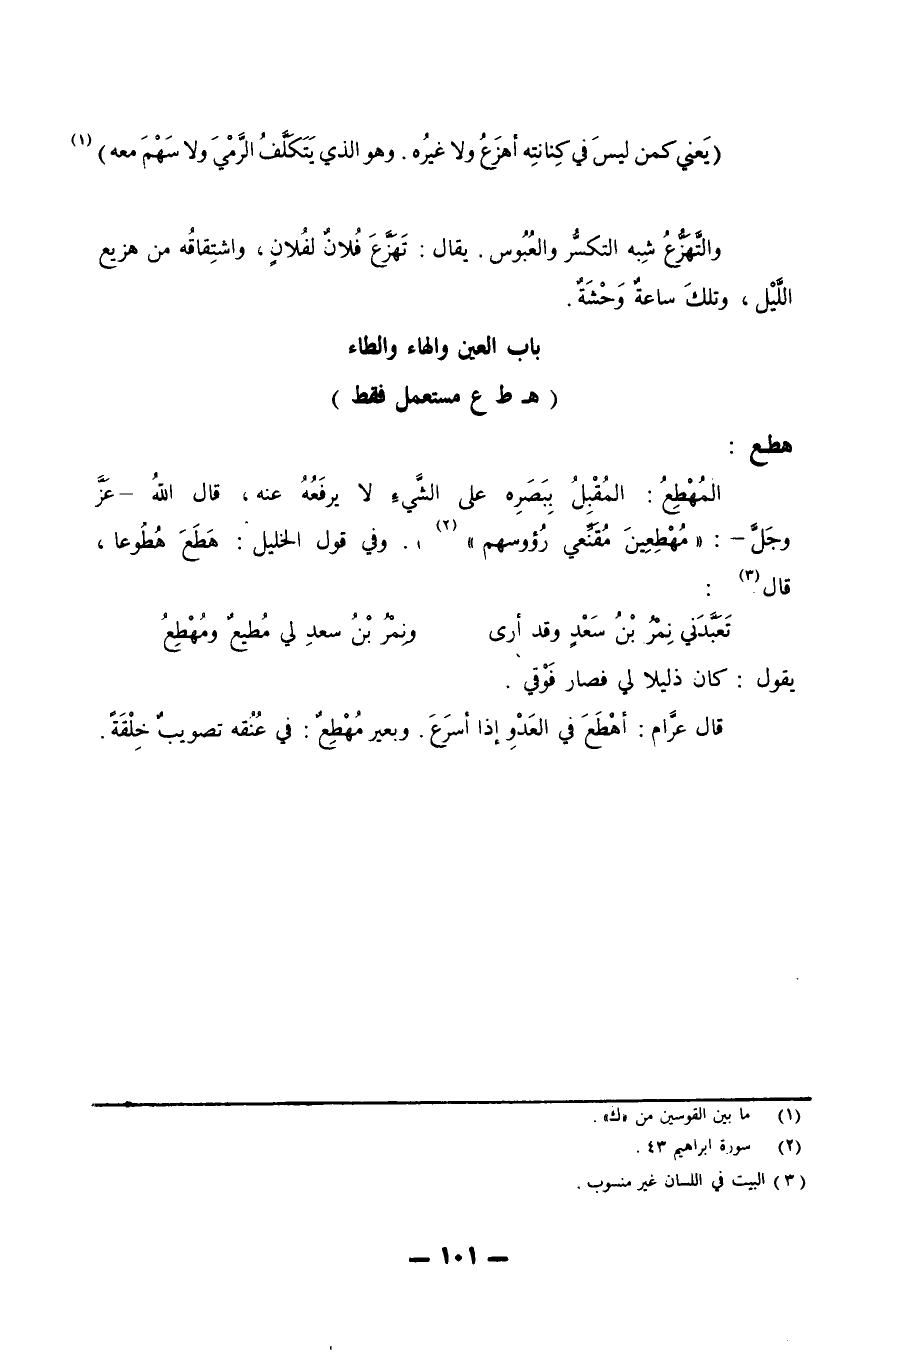 (يَعني كمن ليسَ في كِنانتِه أهزَعُ ولا غيرُه . وهو الذي يَتَكَلَّفُ الرَّمْيَ ولا سَهْمَ معه) (١)
والتَّهَزُّعُ شِبه التكسُّر والعُبُوس . يقال : تَهَزَّعَ فُلانٌ لفُلانٍ ، واشتِقاقُه من هزيع
اللَّيْل ، وتلكَ ساعةٌ وَحْشَةٌ .
باب العين والهاء والطاء
( هـ ط ع مستعمل فقط )
هطع :
المُهْطِعُ : المُقْبِلُ بِبَصَرِه على الشَّيءِ لا يرفَعُهُ عنه ، قال اللهُ – عَزَّ
وجَلَّ – : « مُهْطِعِينَ مُقْنِّعي رُؤوسهم » (٢) . وفي قول الخليل : هَطَعَ هُطُوعا ،
قال (٣) :
تَعَبَّدَني نِمْرُ بْنُ سَعْدٍ وقد أرى ونِمْرُ بْنُ سعدٍ لي مُطيعٌ ومُهْطِعُ
يقول : كان ذليلا لي فصار فَوْقي .
قال عرَّام : أهْطَعَ في العَدْوِ إذا أسرَعَ . وبعير مُهْطِعٌ : في عُنُقه تصويبٌ خِلْقَةً .
(١) ما بين القوسين من «ك» .
(٢) سورة ابراهيم ٤٣ .
(٣) البيت في اللسان غير منسوب .
– ١٠١ –